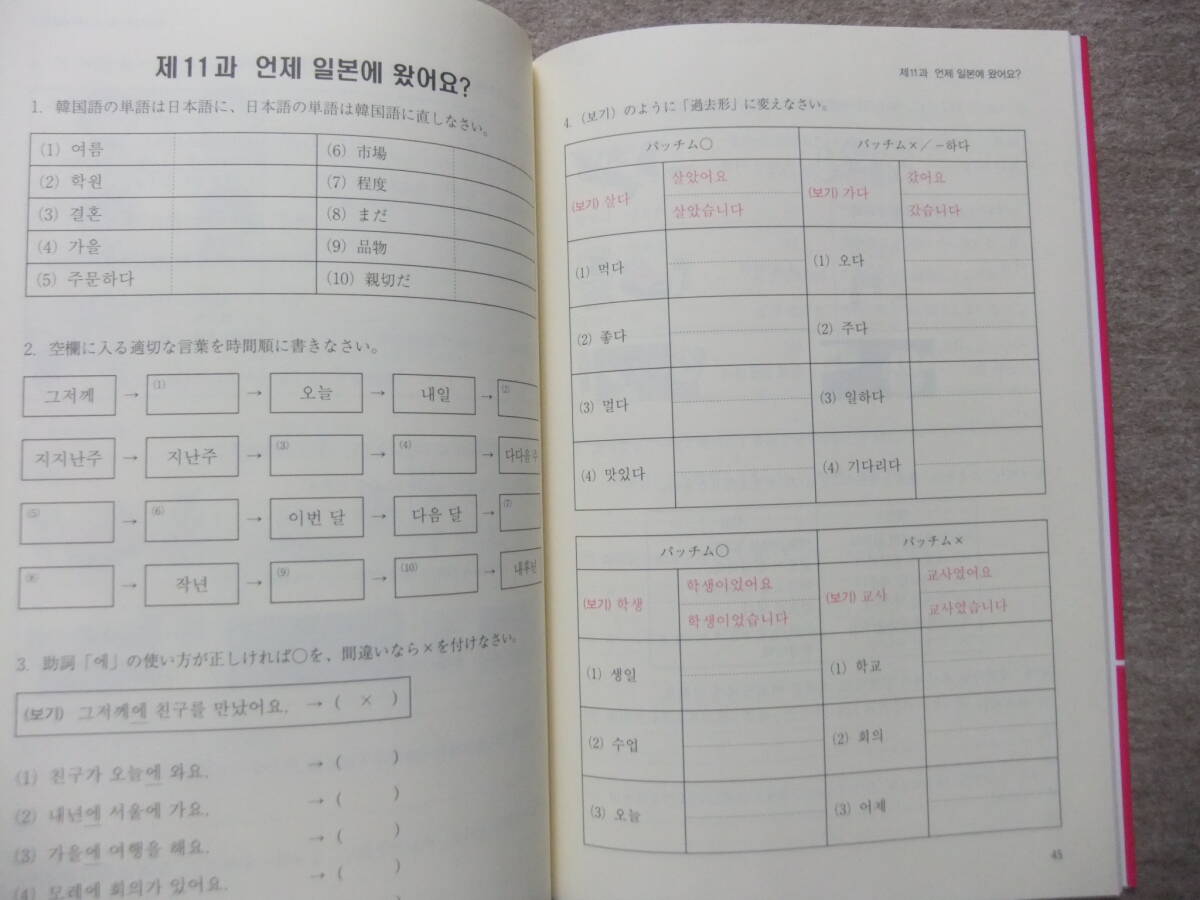 제11과 언제 일본에 왔어요?
1. 韓国語の単語は日本語に、日本語の単語は韓国語に直しなさい。
(1) 여름 (6) 市場
(2) 학원 (7) 程度
(3) 결혼 (8) まだ
(4) 가을 (9) 品物
(5) 주문하다 (10) 親切だ
2. 空欄に入る適切な言葉を時間順に書きなさい。
그저께 → (1) → 오늘 → 내일 → (2)
지지난주 → 지난주 → (3) → (4) → 다다음주
(5) → (6) → 이번 달 → 다음 달 → (7)
(8) → 작년 → (9) → (10) → 내후년
3. 助詞「에」の使い方が正しければ○を、間違いなら×を付けなさい。
(보기) 그저께에 친구를 만났어요. → ( × )
(1) 친구가 오늘에 와요. → ( )
(2) 내년에 서울에 가요. → ( )
(3) 가을에 여행을 해요. → ( )
(4) 모레에 회의가 있어요. → ( )
제11과 언제 일본에 왔어요?
4. (보기) のように「過去形」に変えなさい。
パッチム○ パッチム×/-하다
(보기) 살다 살았어요 (보기) 가다 갔어요
살았습니다 갔습니다
(1) 먹다 (1) 오다
(2) 좋다 (2) 주다
(3) 멀다 (3) 일하다
(4) 맛있다 (4) 기다리다
パッチム○ パッチム×
(보기) 학생 학생이었어요 (보기) 교사 교사였어요
학생이었습니다 교사였습니다
(1) 생일 (1) 학교
(2) 수업 (2) 회의
(3) 오늘 (3) 어제
45